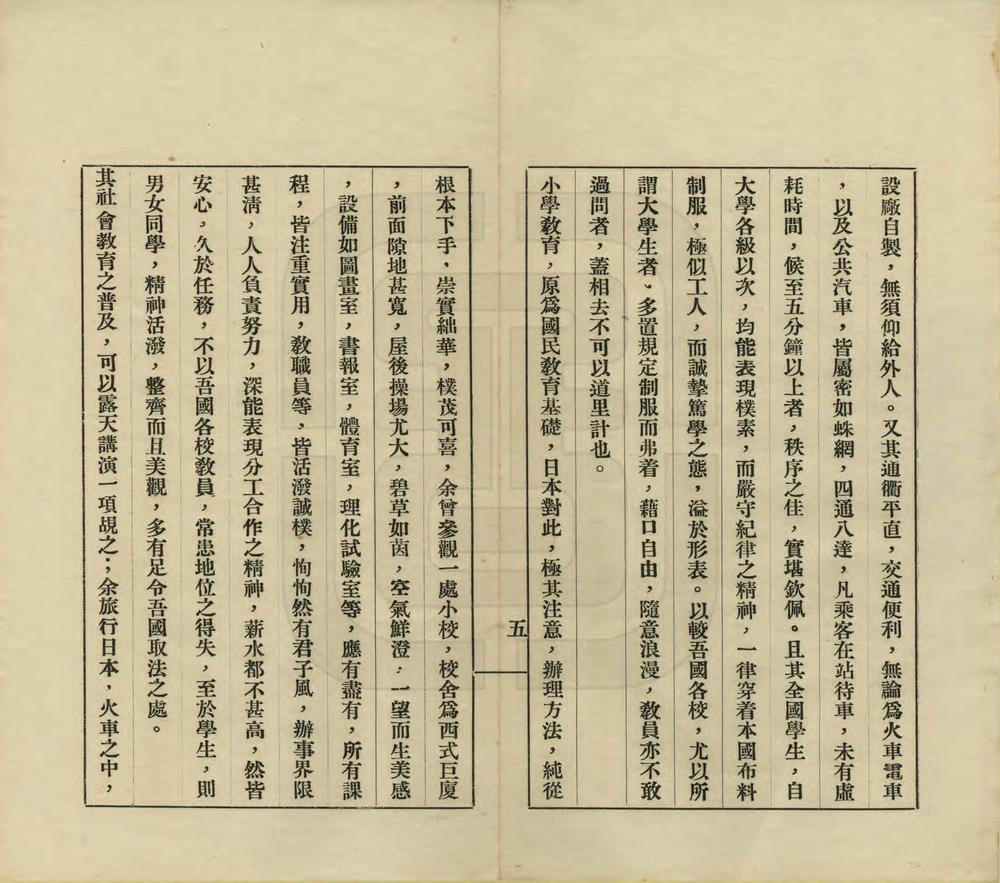 設廠自製，無須仰給外人。又其通衢平直，交通便利，無論爲火車電車
，以及公共汽車，皆屬密如蛛網，四通八達，凡乘客在站待車，未有虛
耗時間，候至五分鐘以上者，秩序之佳，實堪欽佩。且其全國學生，自
大學各級以次，均能表現樸素，而嚴守紀律之精神，一律穿着本國布料
制服，極似工人，而誠摯篤學之態，溢於形表。以較吾國各校，尤以所
謂大學生者、多置規定制服而弗着，藉口自由，隨意浪漫，敎員亦不敢
過問者，蓋相去不可以道里計也。
小學敎育，原爲國民敎育基礎，日本對此，極其注意，辦理方法，純從
五
根本下手，崇實絀華，樸茂可喜，余曾參觀一處小校，校舍爲西式巨廈
，前面隙地甚寬，屋後操場尤大，碧草如茵，空氣鮮澄，一望而生美感
，設備如圖畫室，書報室，體育室，理化試驗室等，應有盡有，所有課
程，皆注重實用，敎職員等，皆活潑誠樸，恂恂然有君子風，辦事界限
甚淸，人人負責努力，深能表現分工合作之精神，薪水都不甚高，然皆
安心，久於任務，不以吾國各校敎員，常患地位之得失，至於學生，則
男女同學，精神活潑，整齊而且美觀，多有足令吾國取法之處。
其社會敎育之普及，可以露天講演一項覘之；余旅行日本，火車之中，